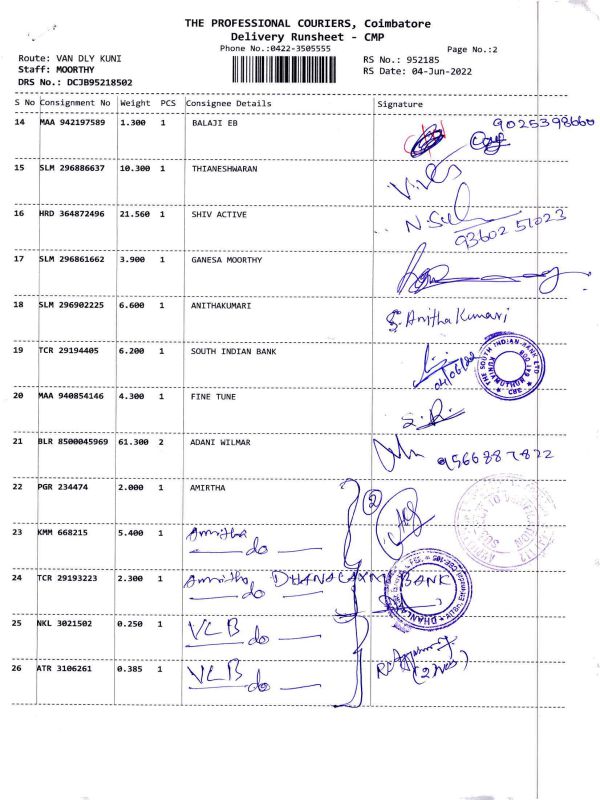 THE PROFESSIONAL COURIERS, Coimbatore
Delivery Runsheet - CMP
Phone No.:0422-3505555
Page No.:2
Route: VAN DLY KUNI
RS No.: 952185
Staff: MOORTHY
RS Date: 04-Jun-2022
DRS No.: DCJB95218502
S No Consignment No Weight PCS Consignee Details Signature
14 MAA 942197589 1.300 1 BALAJI EB 9025398660
15 SLM 296886637 10.300 1 THIANESHWARAN
16 HRD 364872496 21.560 1 SHIV ACTIVE
93602 51023
17 SLM 296861662 3.900 1 GANESA MOORTHY
18 SLM 296902225 6.600 1 ANITHAKUMARI
S. Anitha Kumari
19 TCR 29194405 6.200 1 SOUTH INDIAN BANK
04/06/22
THE SOUTH INDIAN BANK LTD
KUNIAMUTHUR 641 008
CBE
20 MAA 940854146 4.300 1 FINE TUNE
S.R.
21 BLR 8500045969 61.300 2 ADANI WILMAR
9566887872
22 PGR 234474 2.000 1 AMIRTHA
2
23 KMM 668215 5.400 1 Amritha
do
24 TCR 29193223 2.300 1 Amritha DHANALAXMI BANK
do
25 NKL 3021502 0.250 1 VLB
do
26 ATR 3106261 0.385 1 VLB
do
(2 Nos)